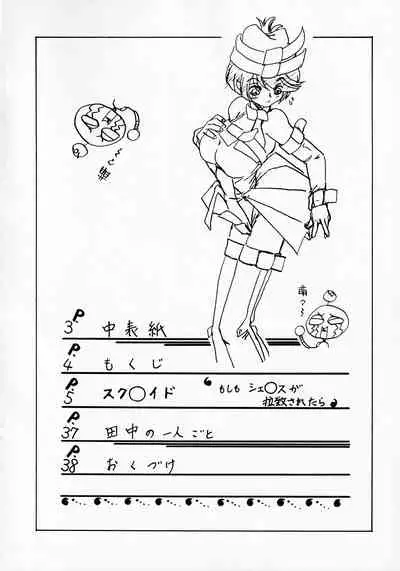 萌?~
P.3 中表紙
P.4 もくじ
P.5 スク〇イド もしも シェ〇スが
拉致されたら
P.37 田中の一人ごと
P.38 おくづけ